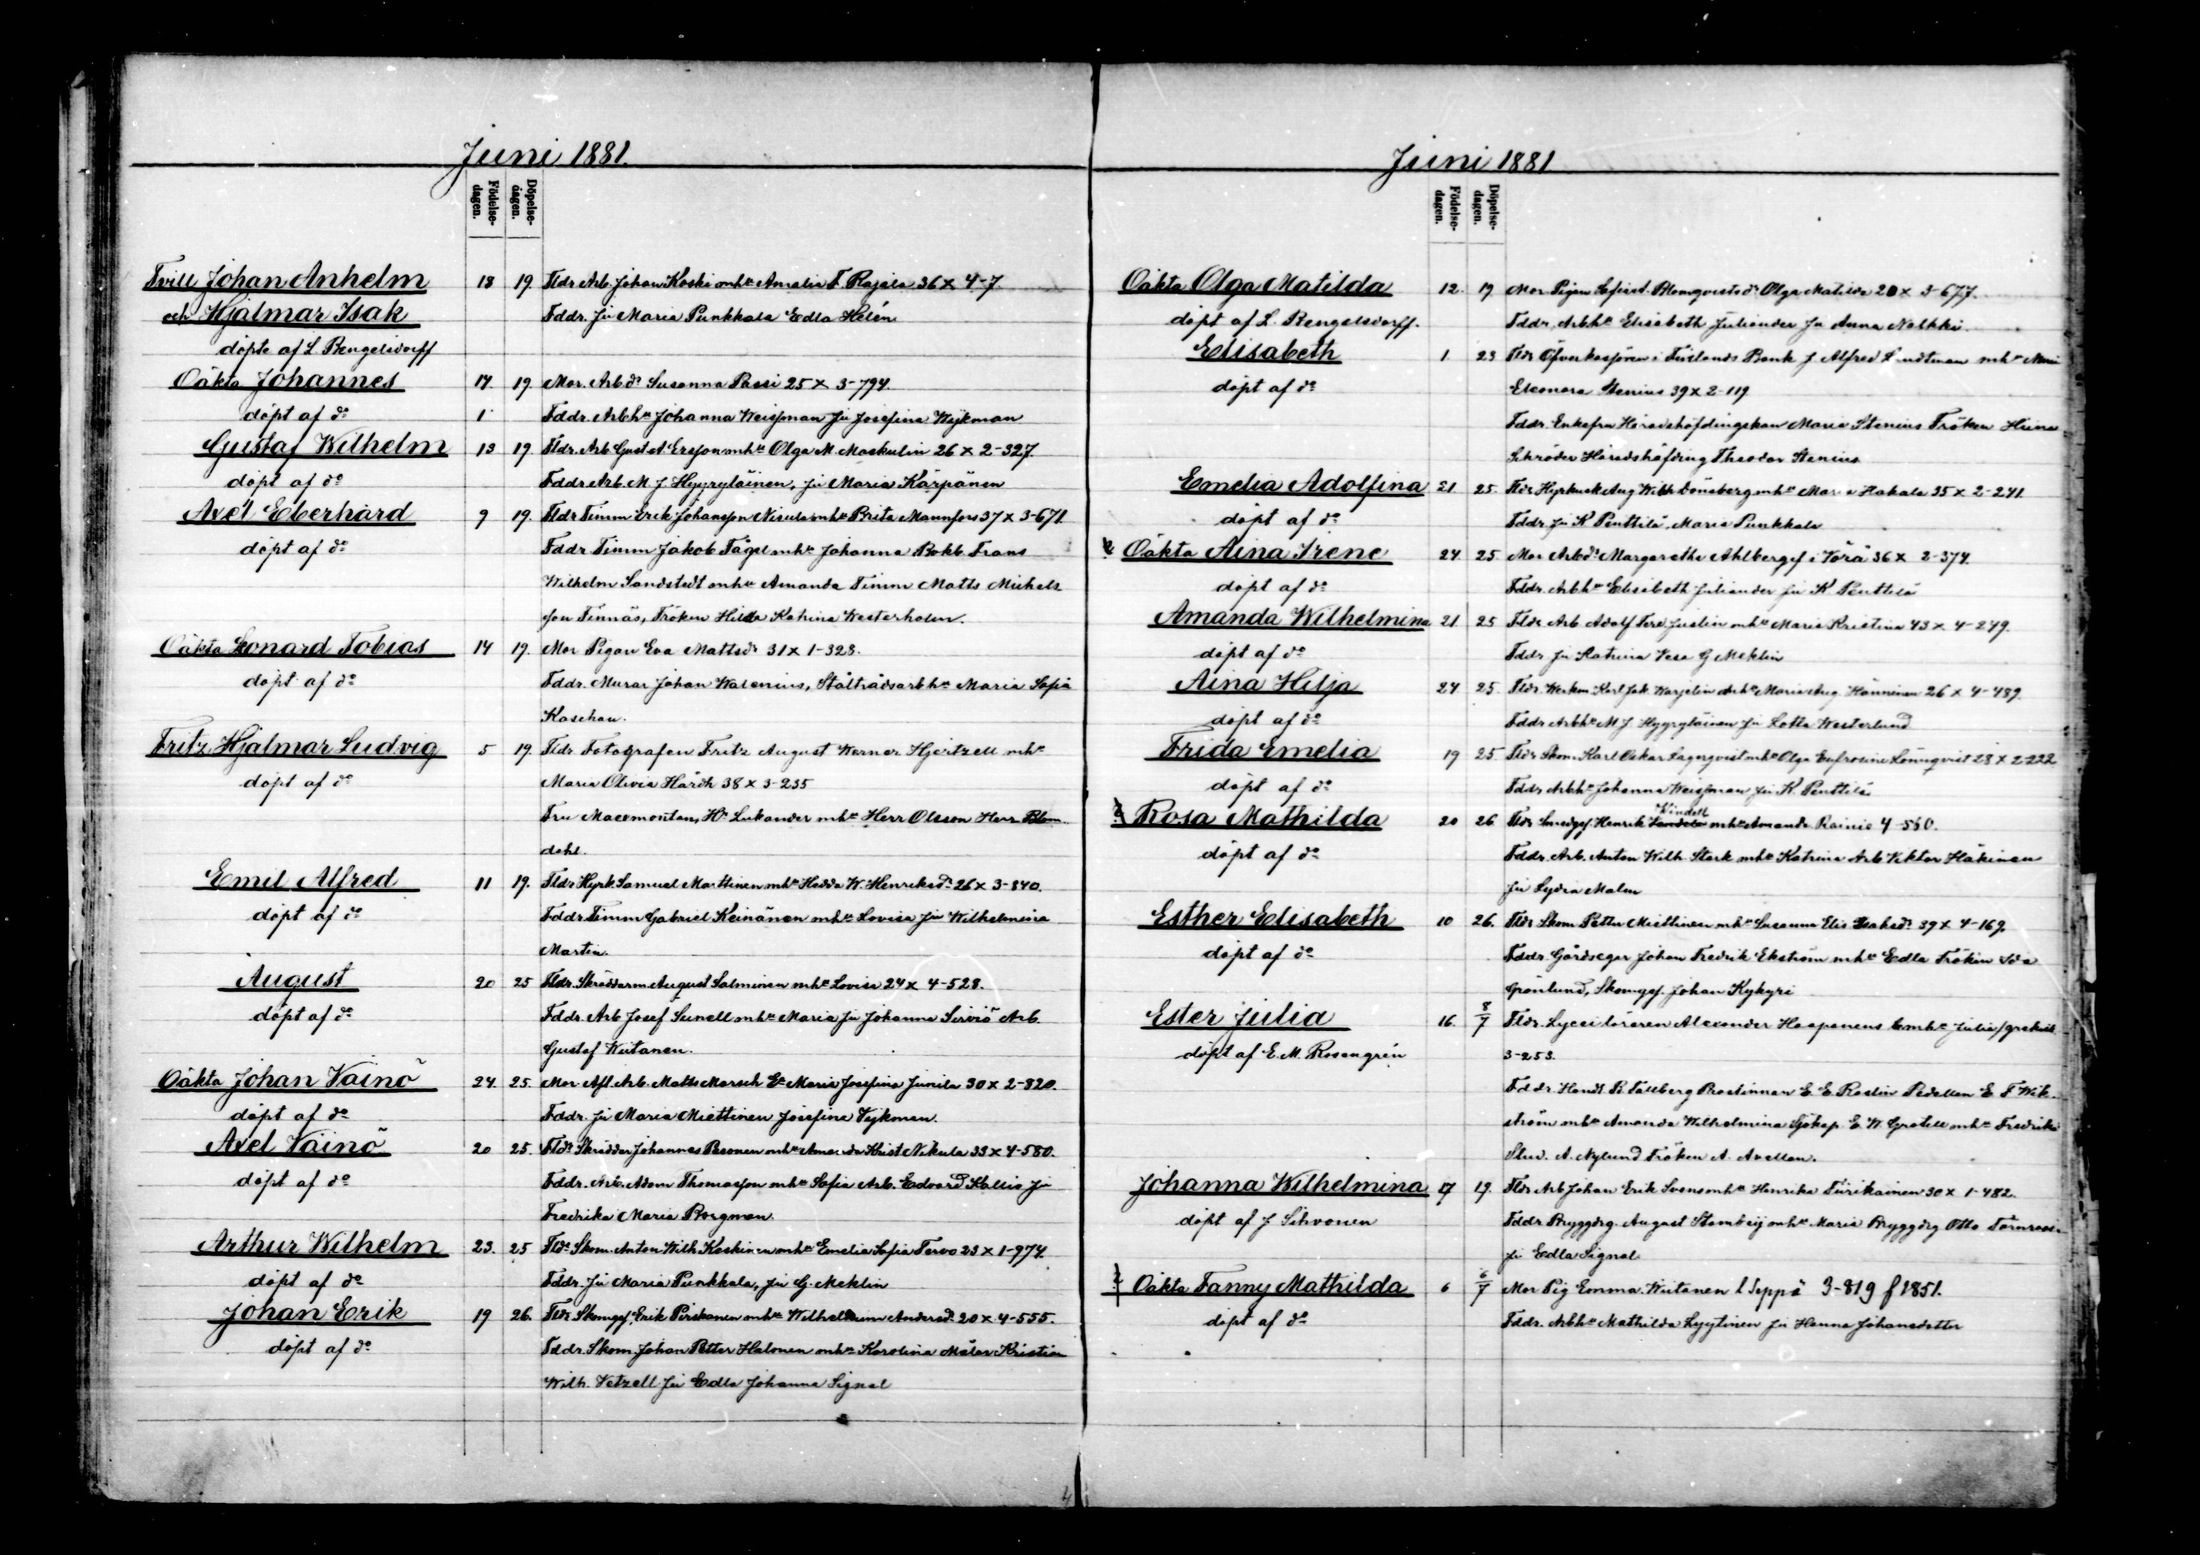 Juni 1881.
Födelse-dagen.
Döpelse-dagen.
Tvill. Johan Anhelm 18 19 Fldr. Arb. Johan Koski o mhu Amalia F Rajala 36 x 4-7
och Hjalmar Isak Fddr. Ju Maria Punkkala Edla Helén
döpte af L. Bengelsdorff
Oäkta Johannes 17. 19 Mor. Arb.dr Susanna Passi 25 x 3-794.
döpt af do 1 Fddr. Arbhu Johanna Weissman Ju Josefina Wejkman
Gustaf Wilhelm 13 19 Fldr. Arb. Gust. A. Ersson o mhu Olga M. Maskulin 26 x 2-327.
döpt af do Fddr Arb. M. J. Hyyryläinen, Ju Maria Kärpänen
Axel Eberhard 9 19. Fldr Timm Erik Johansson Nisula o mhu Brita Mannfors 37 x 3-671.
döpt af do Fddr Timm Jakob Tägel mhu Johanna Bokb. Frans
Wilhelm Sandstedt o mhu Amanda Timm Matts Michels
son Finnäs, Fröken Hilda Katrina Westerholm.
Oäkta Leonard Tobias 14 19. Mor Pigan Eva Mattsdr 31 x 1-328.
döpt af do Fddr. Murar Johan Walenius, Ståltrådsarbhu Maria Sofia
Kaschan.
Fritz Hjalmar Ludvig 5 19. Fldr Fotografen Fritz August Werner Hjertzell mhu
döpt af do Maria Olivia Hårdh 38 x 3-235
Fru Macemontan, Hr Lukander mhu Herr Olsson Herr Blom
dahl.
Emil Alfred 11 19. Fldr Hyrk. Samuel Marttinen mhu Hedda W. Henriksdr 26 x 3-840.
döpt af do Fddr. Timm Gabriel Keinänen o mhu Lovisa Ju Wilhelmina
Martin.
August 20 25 Fldr. Skräddarm. August Salminen mhu Lovisa 24 x 4-528.
döpt af do Fddr. Arb Josef Sunell o mhu Maria Ju Johanna Serviö Arb.
Gustaf Wiitanen.
Oäkta Johan Vainö 24. 25. Mor Afl. Arb. Matts Marsch Ea Maria Josefina Junila 30 x 2-820.
döpt af do Fddr. Ju Maria Miettinen Josefina Vejkman.
Axel Vainö 20 25. Fldr Skräddar Johannes Pesonen o mhu Amanda Krist Nikula 33 x 4-580.
döpt af do Fddr. Arb. Adam Thomasson mhu Sofia Arb. Edvard Kallio Ju
Fredrika Maria Borgman.
Arthur Wilhelm 23. 25 Fldr Skom. Anton Wilh Koskinen o mhu Emelia Sofia Tervo 23 x 1-974.
döpt af do Fddr. Ju Maria Punkkala, Ju G. Meklin
Johan Erik 19 26. Fldr Skomgsf. Erik Piiskanen mhu Wilhelmina Andersdr 20 x 4-555.
döpt af do Fddr. Skom. Johan Petter Halonen o mhu Karolina Målar. Kristian
Wilh. Vetzell Ju Edla Johanna Signal
Juni 1881
Födelse-dagen.
Döpelse-dagen.
Oäkta Olga Matilda 12. 19 Mor Pigan Blomqvists dr Olga Matilda 20 x 3-677.
döpt af L. Bengelsdorff. Fddr, Arbhu Elisabeth Juliander Ju Anna Nelkki.
Elisabeth 1. 23 Fldr Öfverkassören i Finlands Bank J. Alfred Lindtman mhu Maria
döpt af do Eleonora Stenius 39 x 2-119
Fddr. Enkefru Häradshöfdingskan Maria Stenius Fröken Heina
Schröder Häradshöfding Theodor Stenius
Emelia Adolfina 21 25. Fldr Hyrkusk Aug. Wilh Lönsberg mhu Maria Hakala 35 x 2-241
döpt af do Fddr. Ju K Penttilä, Maria Punkkala
Oäkta Aina Irene 24 25. Mor Arb.dr Margaretha Ahlberg i Vörå 36 x 2-374.
döpt af do Fddr. Arbhu Elisabeth Juliander Ju K Penttilä
Amanda Wilhelmina 21 25 Fldr Arb Adolf Ferd. Juslin mhu Maria Kristina 43 x 4-249.
döpt af do Fddr Ju Katrina Vesa G Meklin
Aina Hilja 24 25. Fldr. Werkm Karl Jak. Warjelin mhu Maria Aug. Hänninen 26 x 4-489.
döpt af do Fddr Arbhu M J Hyyryläinen Ju Lotta Westerlund
Frida Emelia 19 25. Fldr Skom. Karl Oskar Lagerqvist mhu Olga Eufrosine Lönnqvist 28 x 2-222
döpt af do Fddr. Arbhu Johanna Weissman Ju K. Penttilä
Vindell
Rosa Mathilda 20 26 Fldr Smedgsf. Henrik mhu Amanda Rainio 4-560.
döpt af do Fddr. Arb. Anton Wilh. Stark mhu Katrina Arb Viktor Häkinen
Ju Lydia Malm
Esther Elisabeth 10 26. Fldr Skom. Petter Miettinen mhu Susanna Elis. Isaksdr 39 x 4-169.
döpt af do Fddr. Gårdseger Johan Fredrik Ekström mhu Edla Fröken Ida
Grönlund, Skomgsf. Johan Kykyri
Ester Julia 16. 8/7 Fldr. Lyceiläraren Alexander Haapanens o mhu Julia (grekisk
döpt af E. M. Rosengrén 3-253.
Fddr. Handl. R. Tallberg Prostinnan E. E. Roslin Pedellen E. F. Wik-
ström mhu Amanda Wilhelmina Sjökap. E. W. Gratell mhu Fredrika
Stud. A. Nylund Fröken A. Avellan.
Johanna Wilhelmina 17 19. Fldr Arb Johan Erik Svens mhu Henrika Tiirikainen 30 x 1-482.
döpt af J Sihvonen Fddr. Bryggdrg. August Stambeij mhu Maria Bryggdrg Otto Törnroos
Ju Edla Signal
Oäkta Fanny Mathilda 6 6/7 Mor Pig Emma Wiitanen l. Seppä 3-819 f 1851.
döpt af do Fddr. Arbhu Mathilda Lyytinen Ju Hanna Johansdotter